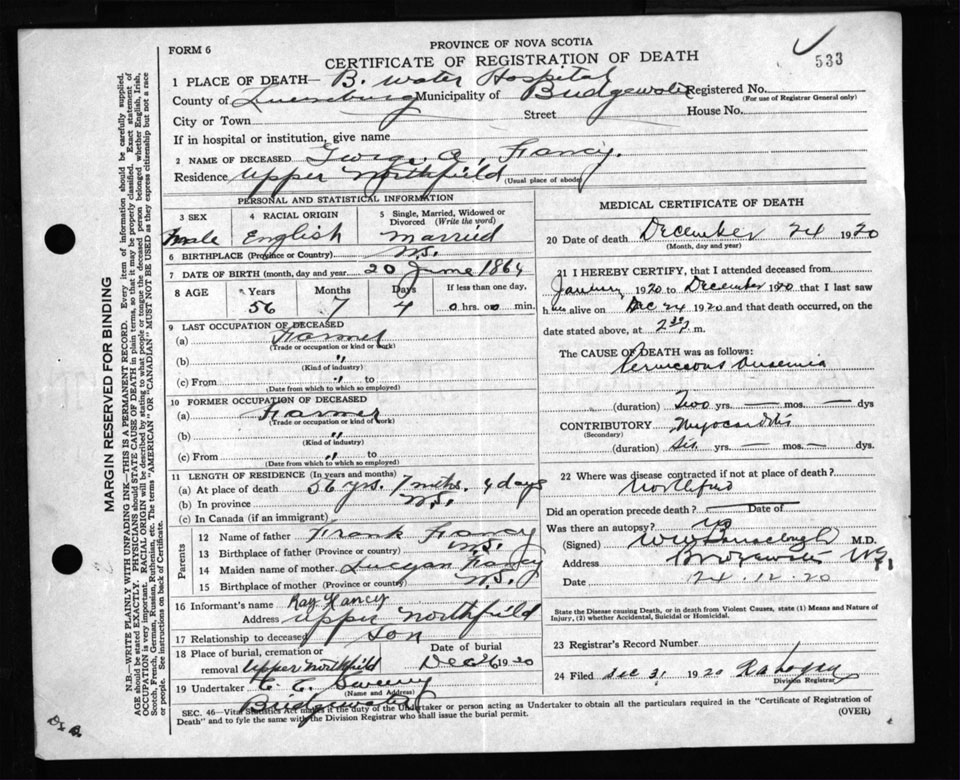 PROVINCE OF NOVA SCOTIA
FORM 6
CERTIFICATE OF REGISTRATION OF DEATH
533
1 PLACE OF DEATH— B. Water Hospital
County of Lunenburg Municipality of Bridgewater Registered No.
(For use of Registrar General only)
City or Town Street House No.
If in hospital or institution, give name
2 NAME OF DECEASED George A. Fancy.
Residence Upper Northfield
(Usual place of abode)
PERSONAL AND STATISTICAL INFORMATION
3 SEX 4 RACIAL ORIGIN 5 Single, Married, Widowed or Divorced (Write the word)
Male English Married
6 BIRTHPLACE (Province or Country) N.S.
7 DATE OF BIRTH (month, day and year) 20 June 1864
8 AGE Years Months Days If less than one day,
56 7 4 0 hrs. 00 min.
9 LAST OCCUPATION OF DECEASED
(a) Farmer
(Trade or occupation or kind of work)
(b) "
(Kind of industry)
(c) From " to
(Date from which to which so employed)
10 FORMER OCCUPATION OF DECEASED
(a) Farmer
(Trade or occupation or kind of work)
(b) "
(Kind of industry)
(c) From " to
(Date from which to which so employed)
11 LENGTH OF RESIDENCE (In years and months)
(a) At place of death 56 yrs. 7 mths. 4 days
(b) In province N.S.
(c) In Canada (if an immigrant)
Parents
12 Name of father Frank Fancy
13 Birthplace of father (Province or country) N.S.
14 Maiden name of mother Fancy
15 Birthplace of mother (Province or country) N.S.
16 Informant's name Ray Fancy
Address Upper Northfield
17 Relationship to deceased Son
18 Place of burial, cremation or removal Upper Northfield
Date of burial Dec 26 1920
19 Undertaker C. E. Sweeny
(Name and Address)
Bridgewater
MEDICAL CERTIFICATE OF DEATH
20 Date of death December 24 1920
(Month, day and year)
21 I HEREBY CERTIFY, that I attended deceased from
January 1920 to December 1920 that I last saw
him alive on Dec 24 1920 and that death occurred, on
date stated above, at 2 30 m.
The CAUSE OF DEATH was as follows:
Pernicious Anaemia
(duration) Two yrs. — mos. — dys
CONTRIBUTORY Myocarditis
(Secondary)
(duration) Six yrs. — mos. — dys.
22 Where was disease contracted if not at place of death?
Northfield
Did an operation precede death? — Date of
Was there an autopsy? no
(Signed) M.D.
Address Bridgewater N.S.
Date 24.12.20
State the Disease causing Death, or in death from Violent Causes, state (1) Means and Nature of
Injury, (2) whether Accidental, Suicidal or Homicidal.
23 Registrar's Record Number
24 Filed Dec 31 1920
Division Registrar
SEC. 46—Vital Statistics Act makes it the duty of the Undertaker or person acting as Undertaker to obtain all the particulars required in the "Certificate of Registration of
Death" and to fyle the same with the Division Registrar who shall issue the burial permit. (OVER)
MARGIN RESERVED FOR BINDING
N.B.—WRITE PLAINLY WITH UNFADING INK—THIS IS A PERMANENT RECORD. Every item of information should be carefully supplied.
AGE should be stated EXACTLY. PHYSICIANS should STATE CAUSE OF DEATH in plain terms, so that it may be properly classified. Exact statement of
OCCUPATION is very important. RACIAL ORIGIN will be described by stating to what people or tongue the deceased person belonged whether English, Irish,
Scotch, French, German, Russian, Ruthenian, etc. The terms "AMERICAN" OR "CANADIAN" MUST NOT BE USED as they express citizenship but not a race
or people. See instructions on back of Certificate.